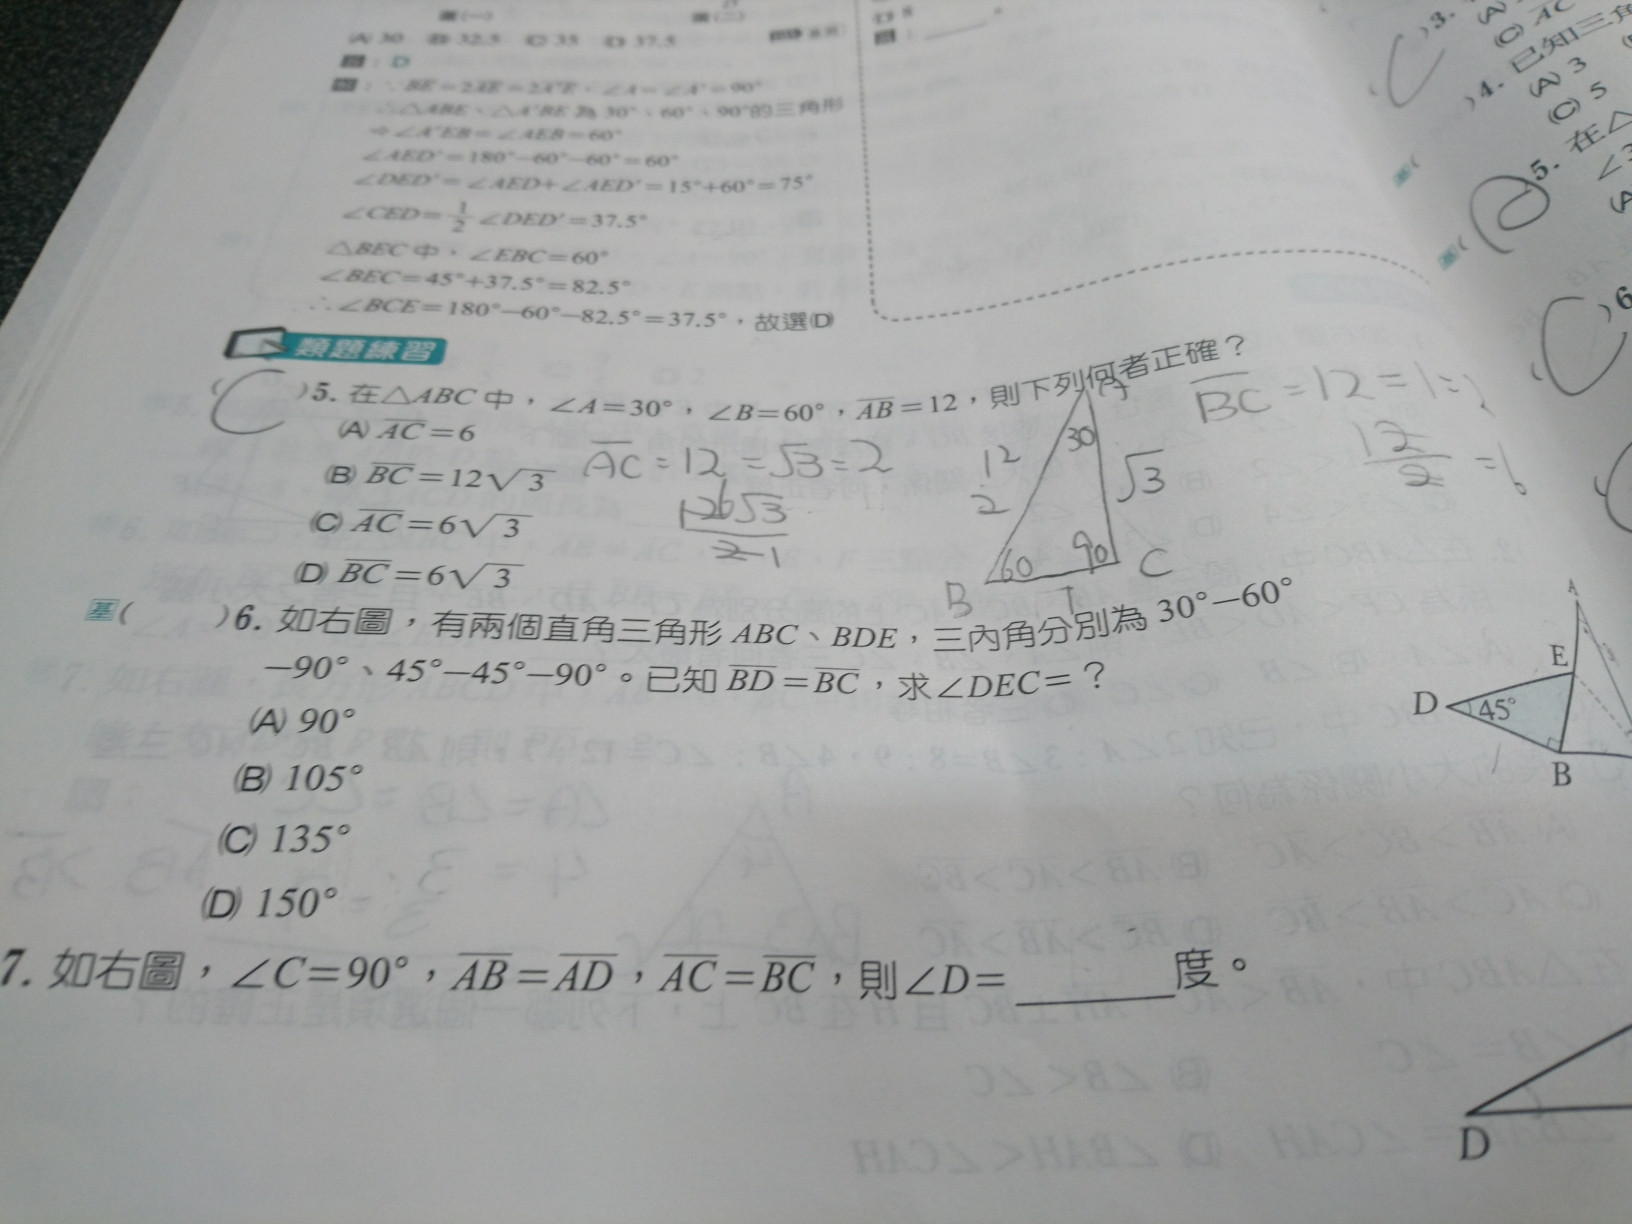 (A) 30 (B) 32.5 (C) 35 (D) 37.5
: D
: ∵ BE=2AE=2A'E,∠A=∠A'=90°
∴△ABE、△A'BE 為 30°、60°、90°的三角形
⇒∠A'EB=∠AEB=60°
∠AED'=180°−60°−60°=60°
∠DED'=∠AED+∠AED'=15°+60°=75°
∠CED=1/2 ∠DED'=37.5°
△BEC 中,∠EBC=60°
∠BEC=45°+37.5°=82.5°
∴∠BCE=180°−60°−82.5°=37.5°,故選(D)
類題練習
( C )5. 在△ABC 中,∠A=30°,∠B=60°,AB=12,則下列何者正確?
(A) AC=6
(B) BC=12√3
(C) AC=6√3
(D) BC=6√3
AC=12=√3=2
12 6√3
2 1
BC=12=1=2
12
2 =6
A
30
12
2
√3
60 90
B 1 C
基( )6. 如右圖,有兩個直角三角形 ABC、BDE,三內角分別為 30°−60°
−90°、45°−45°−90°。已知 BD=BC,求∠DEC=?
(A) 90°
(B) 105°
(C) 135°
(D) 150°
A
E
D 45°
B
7. 如右圖,∠C=90°,AB=AD,AC=BC,則∠D=______度。
D
)3.
(A)
(C) AC
)4. 已知三角
(A) 3
(C) 5
基(
)5. 在△
基(
)6